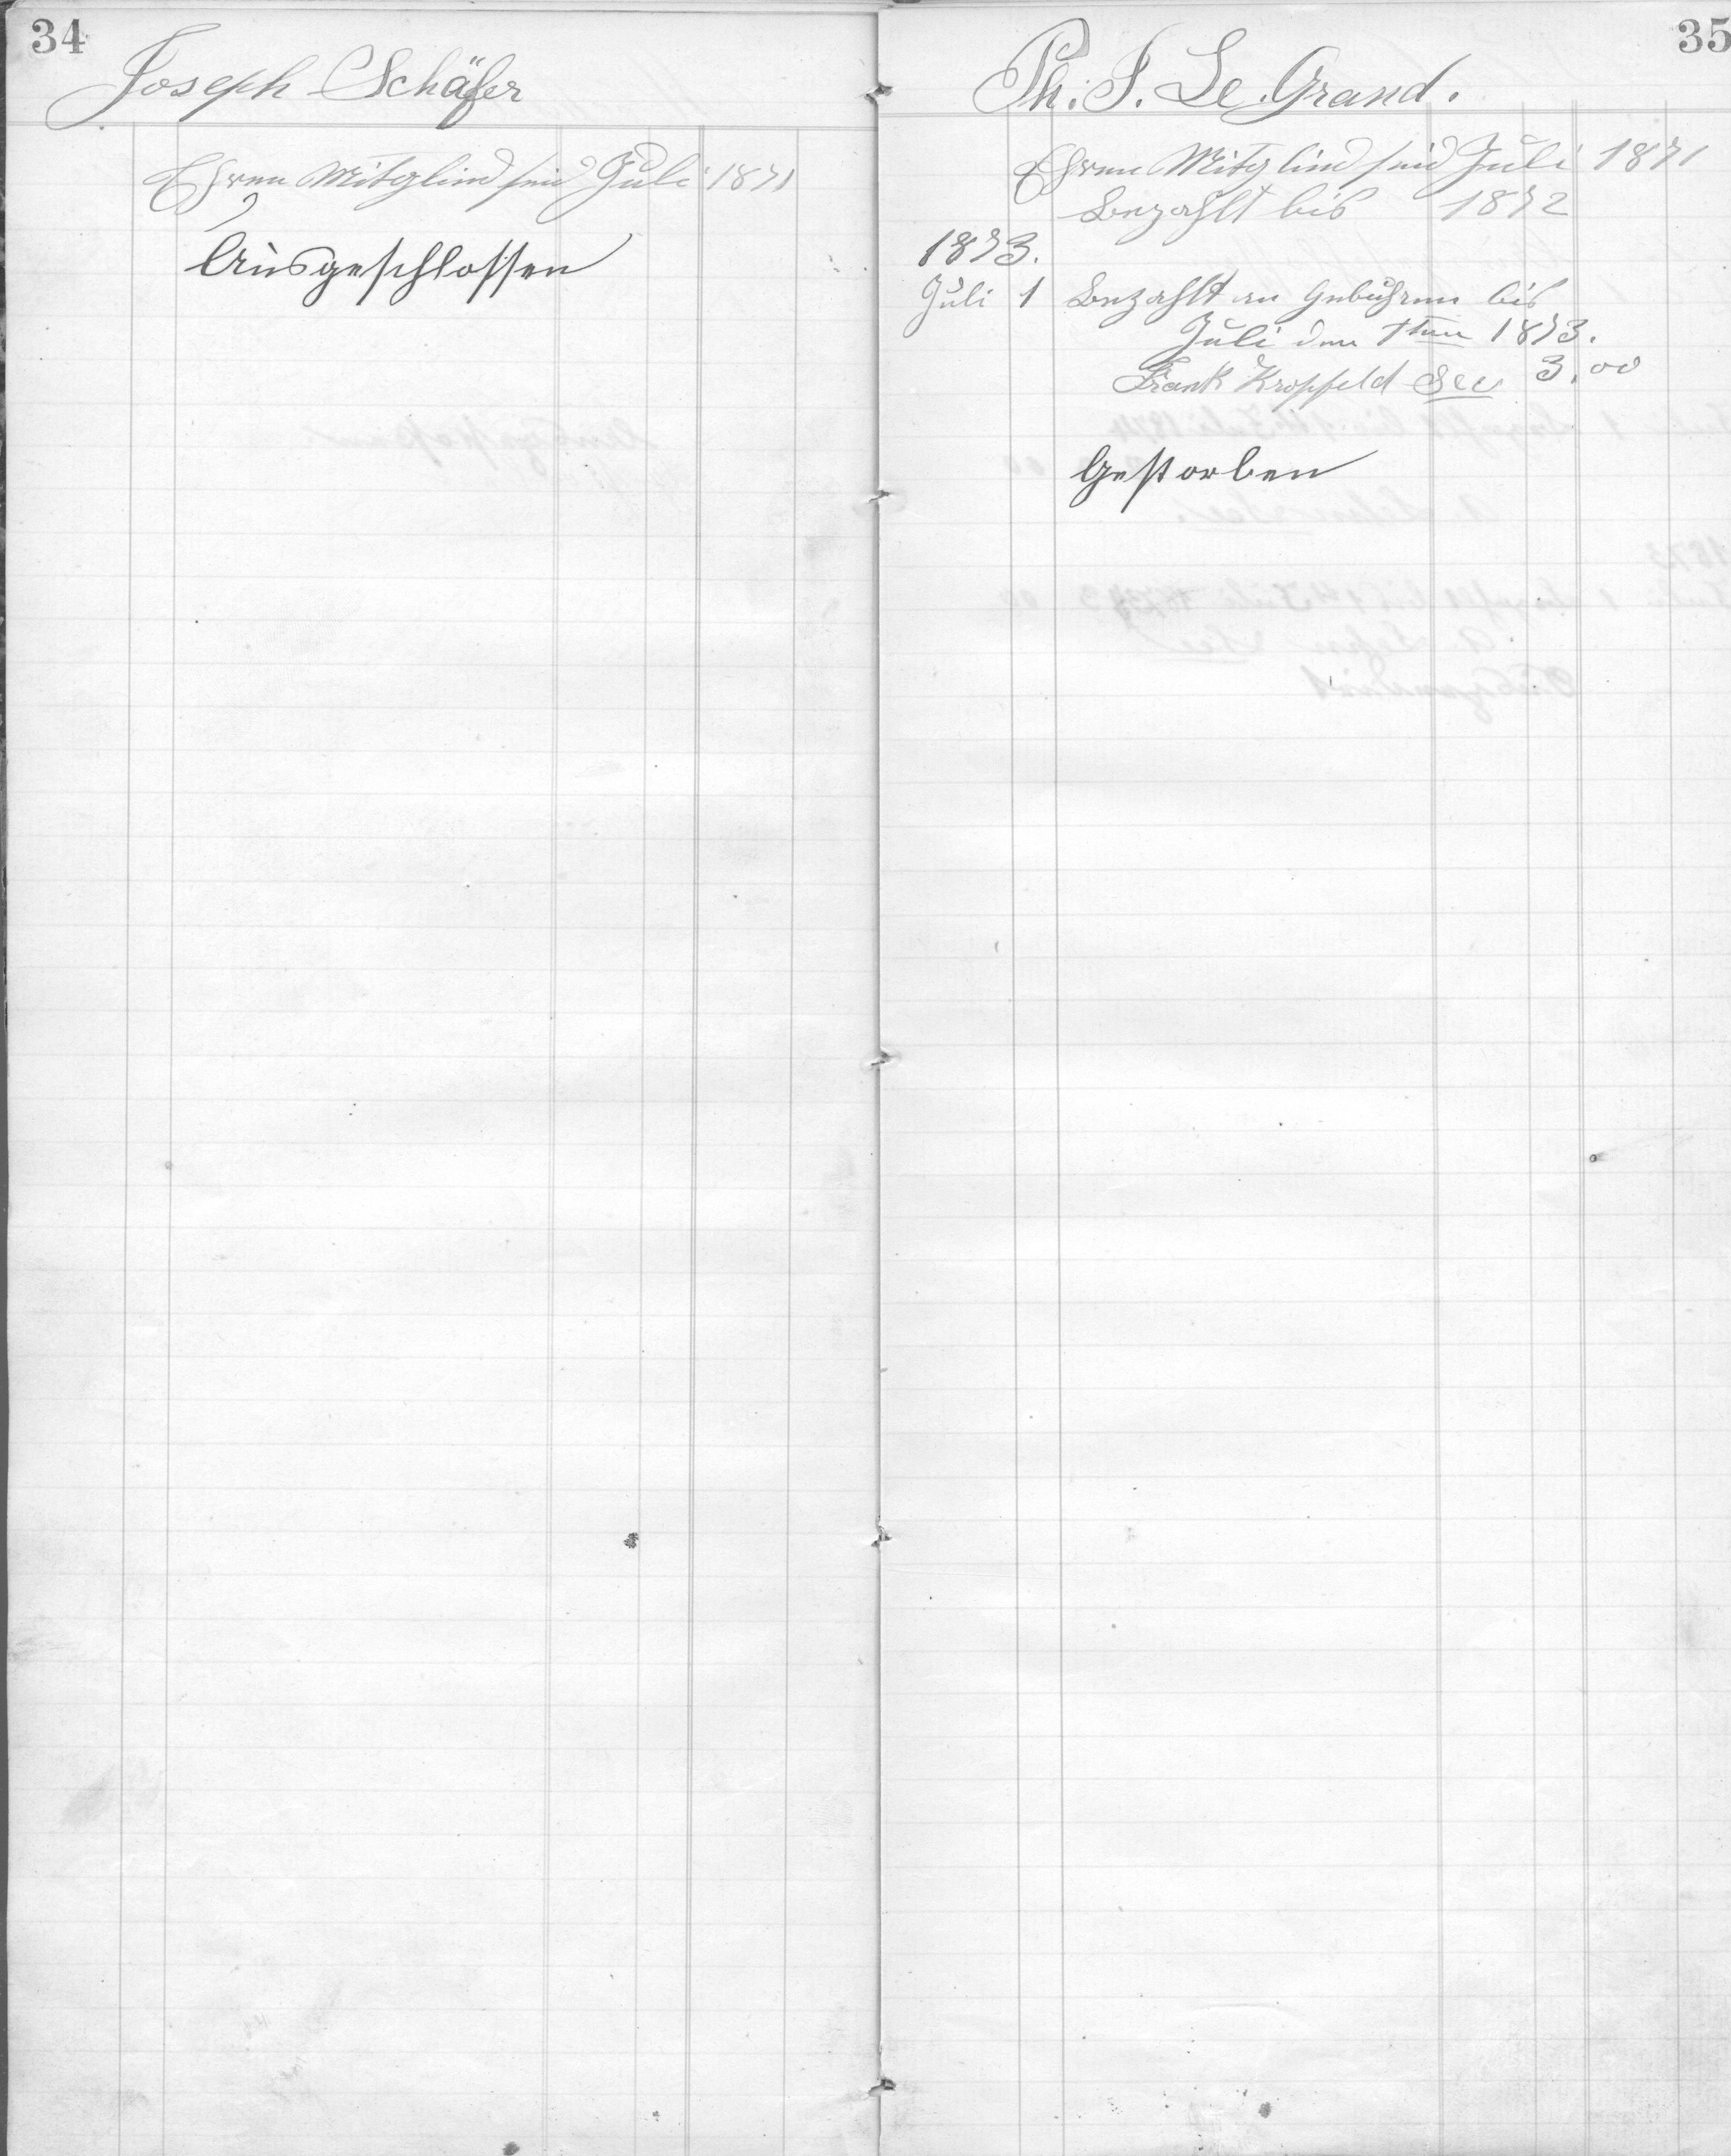 34
Joseph Schäfer
Ehren Mitglied seid Juli 1871
Ausgeschlossen
35
Ph. J. Le Grand.
Ehren Mitglied seid Juli 1871
Bezahlt bis 1872
1873.
Juli 1 Bezahlt an Gebühren bis
Juli den 1ten 1873.
Frank Kropfeld Sec 3.00
Gestorben